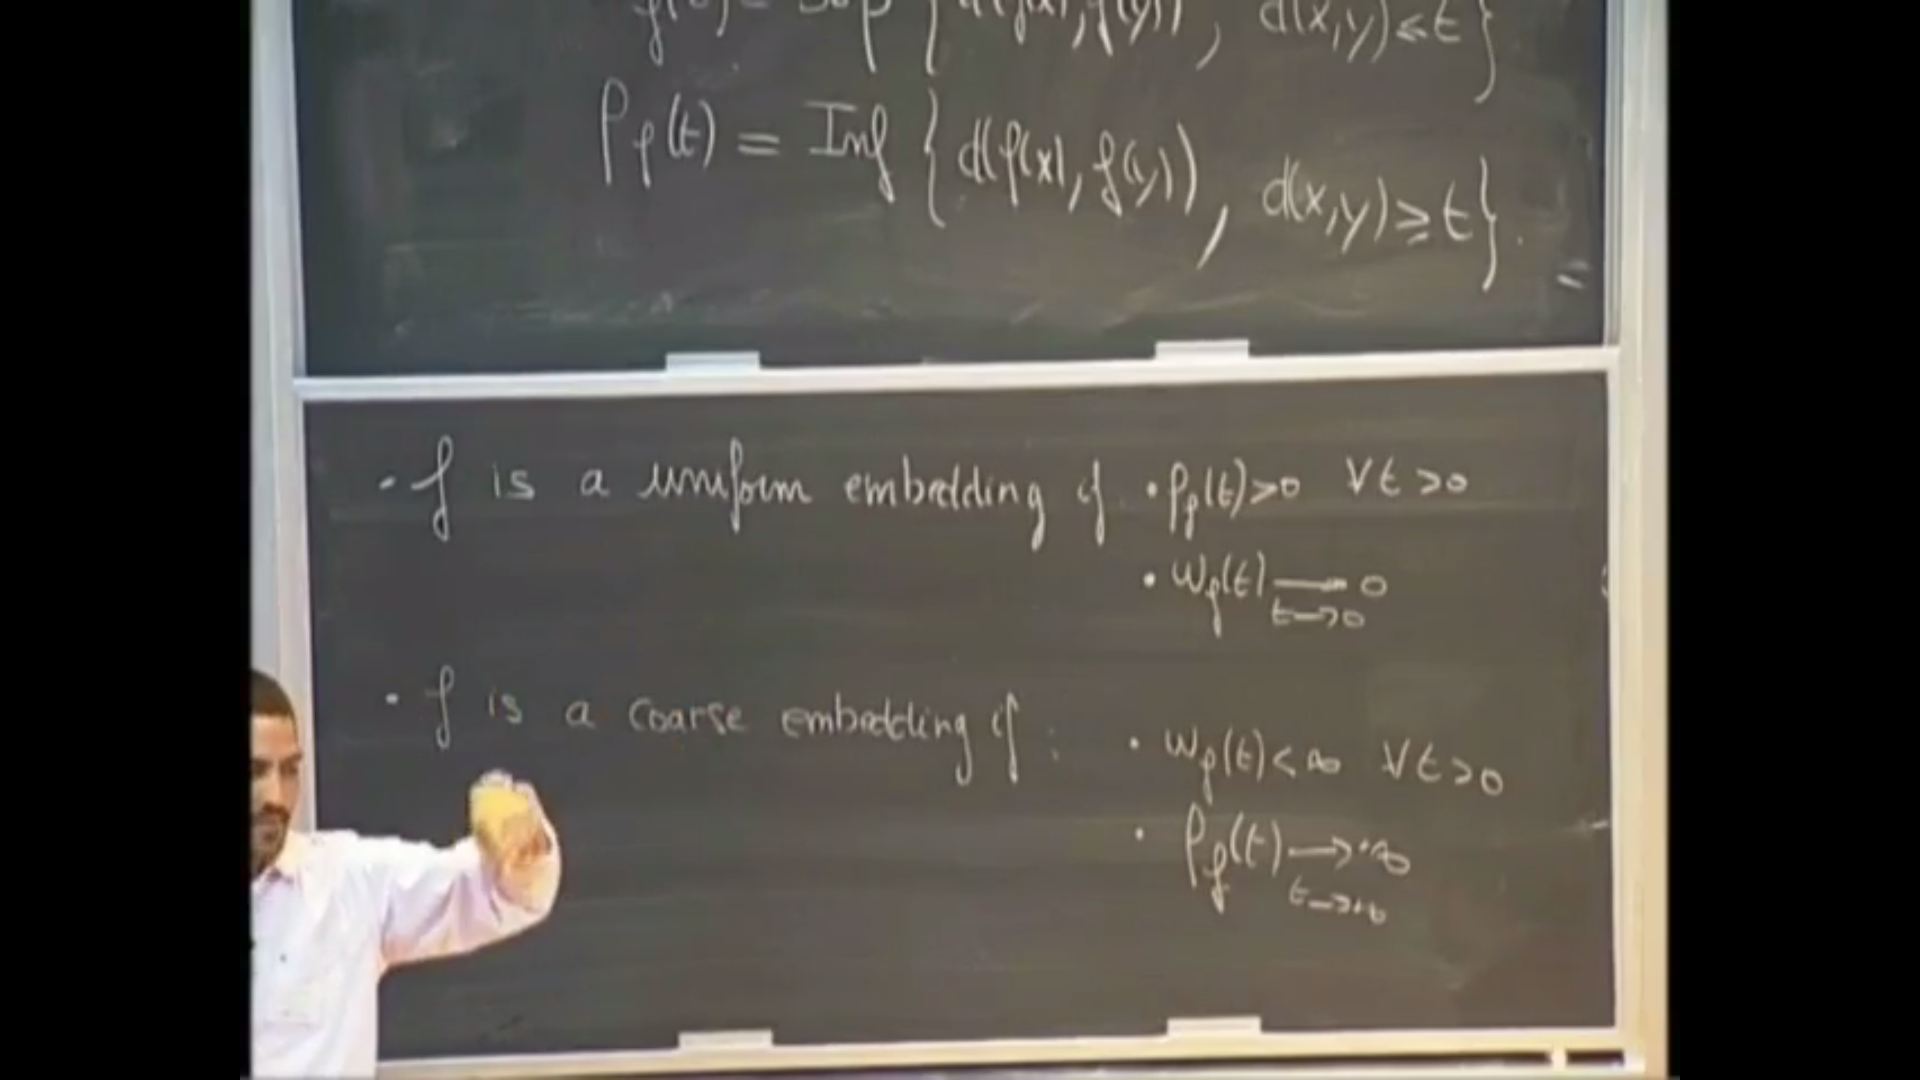 f(t) = Sup { d(f(x), f(y)), d(x,y) ≤ t }
ρ_f(t) = Inf { d(f(x), f(y)), d(x,y) ≥ t }.
• f is a uniform embedding if • ρ_f(t) > 0 ∀t > 0
• ω_f(t) → 0
t → 0
• f is a coarse embedding if : • ω_f(t) < ∞ ∀t > 0
• ρ_f(t) → +∞
t → +∞